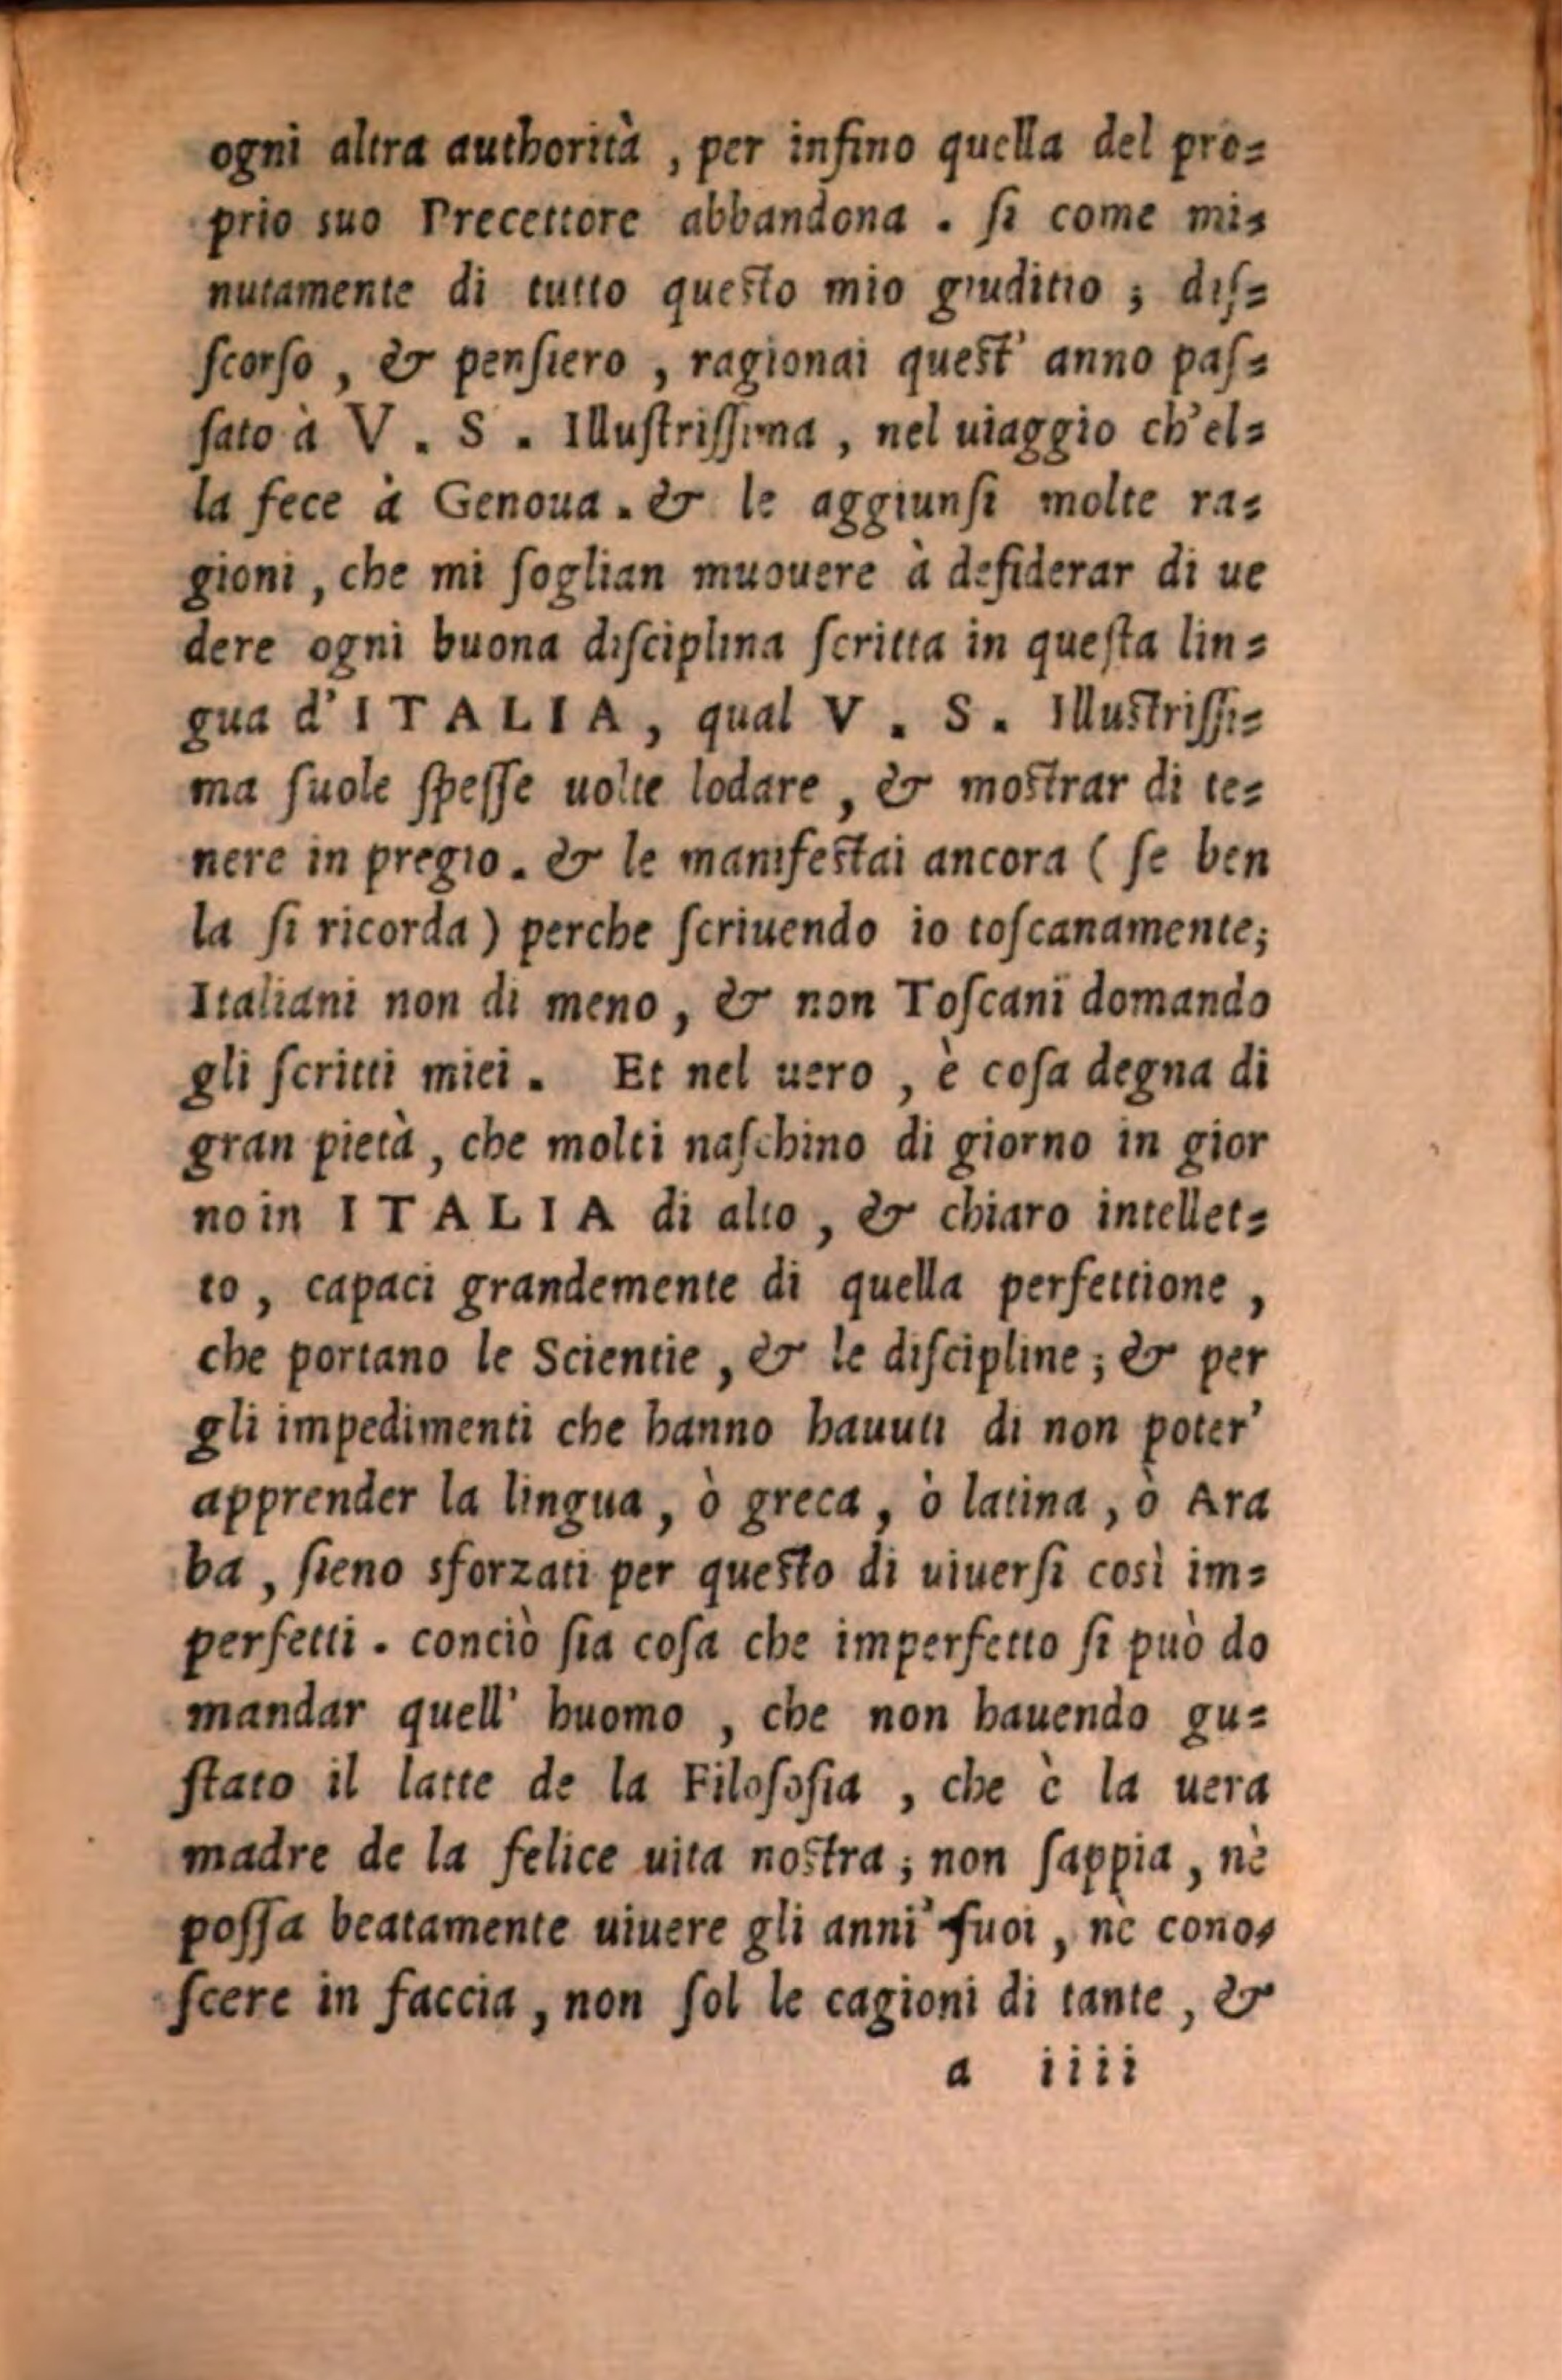 ogni altra authorità , per infino quella del pro=
prio suo Precettore abbandona . ſi come mi=
nutamente di tutto queſto mio giuditio ; diſ=
ſcorſo , & penſiero , ragionai queſt' anno paſ=
ſato à V . S . Illuſtriſſima , nel uiaggio ch'el=
la fece à Genoua . & le aggiunſi molte ra=
gioni , che mi ſoglian muouere à deſiderar di ue
dere ogni buona diſciplina ſcritta in queſta lin=
gua d' ITALIA , qual V . S . Illuſtriſſi=
ma ſuole ſpeſſe uolte lodare , & moſtrar di te=
nere in pregio . & le manifeſtai ancora ( ſe ben
la ſi ricorda ) perche ſcriuendo io toſcanamente;
Italiani non di meno , & non Toſcani domando
gli ſcritti miei . Et nel uero , è coſa degna di
gran pietà , che molti naſchino di giorno in gior
no in ITALIA di alto , & chiaro intellet=
to , capaci grandemente di quella perfettione ,
che portano le Scientie , & le diſcipline ; & per
gli impedimenti che hanno hauuti di non poter'
apprender la lingua , ò greca , ò latina , ò Ara
ba , ſieno sforzati per queſto di uiuerſi così im=
perfetti . conciò ſia coſa che imperfetto ſi può do
mandar quell' huomo , che non hauendo gu=
ſtato il latte de la Filoſoſia , che è la uera
madre de la felice uita noſtra ; non ſappia , nè
poſſa beatamente uiuere gli anni ſuoi , nè cono=
ſcere in faccia , non ſol le cagioni di tante , &
a iiii